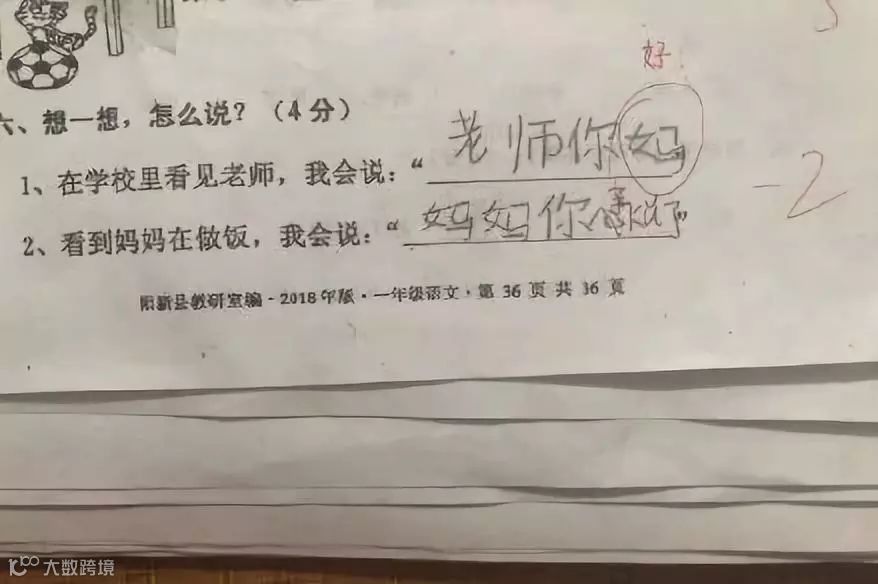 好
六、想一想，怎么说？（4分）
1、在学校里看见老师，我会说：“老师你妈
-2
2、看到妈妈在做饭，我会说：“妈妈你辛苦了”
阳新县教研室编·2018年版·一年级语文·第 36 页 共 36 页
大数跨境